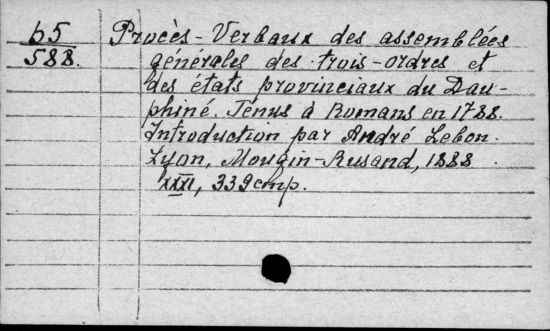 b5 Procès-Verbaux des assemblées
588. générales des trois-ordres et
des états provinciaux du Dau-
phiné. Tenus à Romans en 1788.
Introduction par André Lebon.
Lyon, Mougin-Rusand, 1888.
XXXI, 339